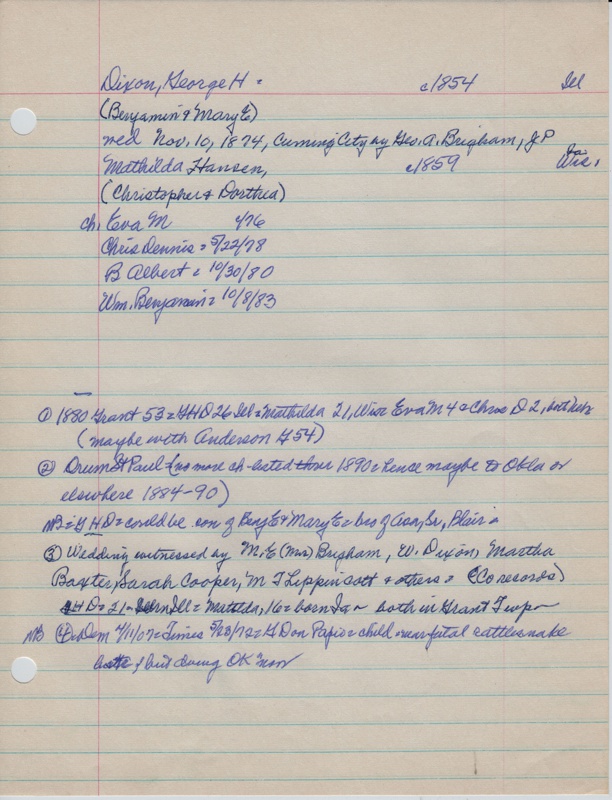 Dixon, George H = c1854 Ill
(Benjamin & Mary E)
wed Nov. 10, 1874, Cuming City by Geo. A. Brigham, JP
Mathilda Hansen, c1859 Ia Wis.
(Christopher & Dorthea)
ch. Eva M 4/76
Chris Dennis = 5/22/78
B Albert = 10/30/80
Wm. Benjamin = 10/8/83
① 1880 Grant 53 = GHD 26 Ill = Mathilda 21, Wis = Eva M 4 & Chris D 2, both Nebr
(maybe with Anderson G54)
② Drum St Paul = no more ch listed thru 1890 = hence maybe to Okla or
elsewhere 1884-90)
NB = GHD = could be son of Benj E & Mary E = bro of Asa, Sr, Blair =
③ Wedding witnessed by M. E (Mrs) Brigham, W. Dixon, Martha
Baxter, Sarah Cooper, M T Lippincott & others = (Co records)
GHD = 21 = born Ill = Matilda, 16 = born Ia = both in Grant Twp
NB ④ Dem 4/11/07 = Times 5/28/72 = GD on Papio = child near fatal rattlesnake
bite, but doing OK now